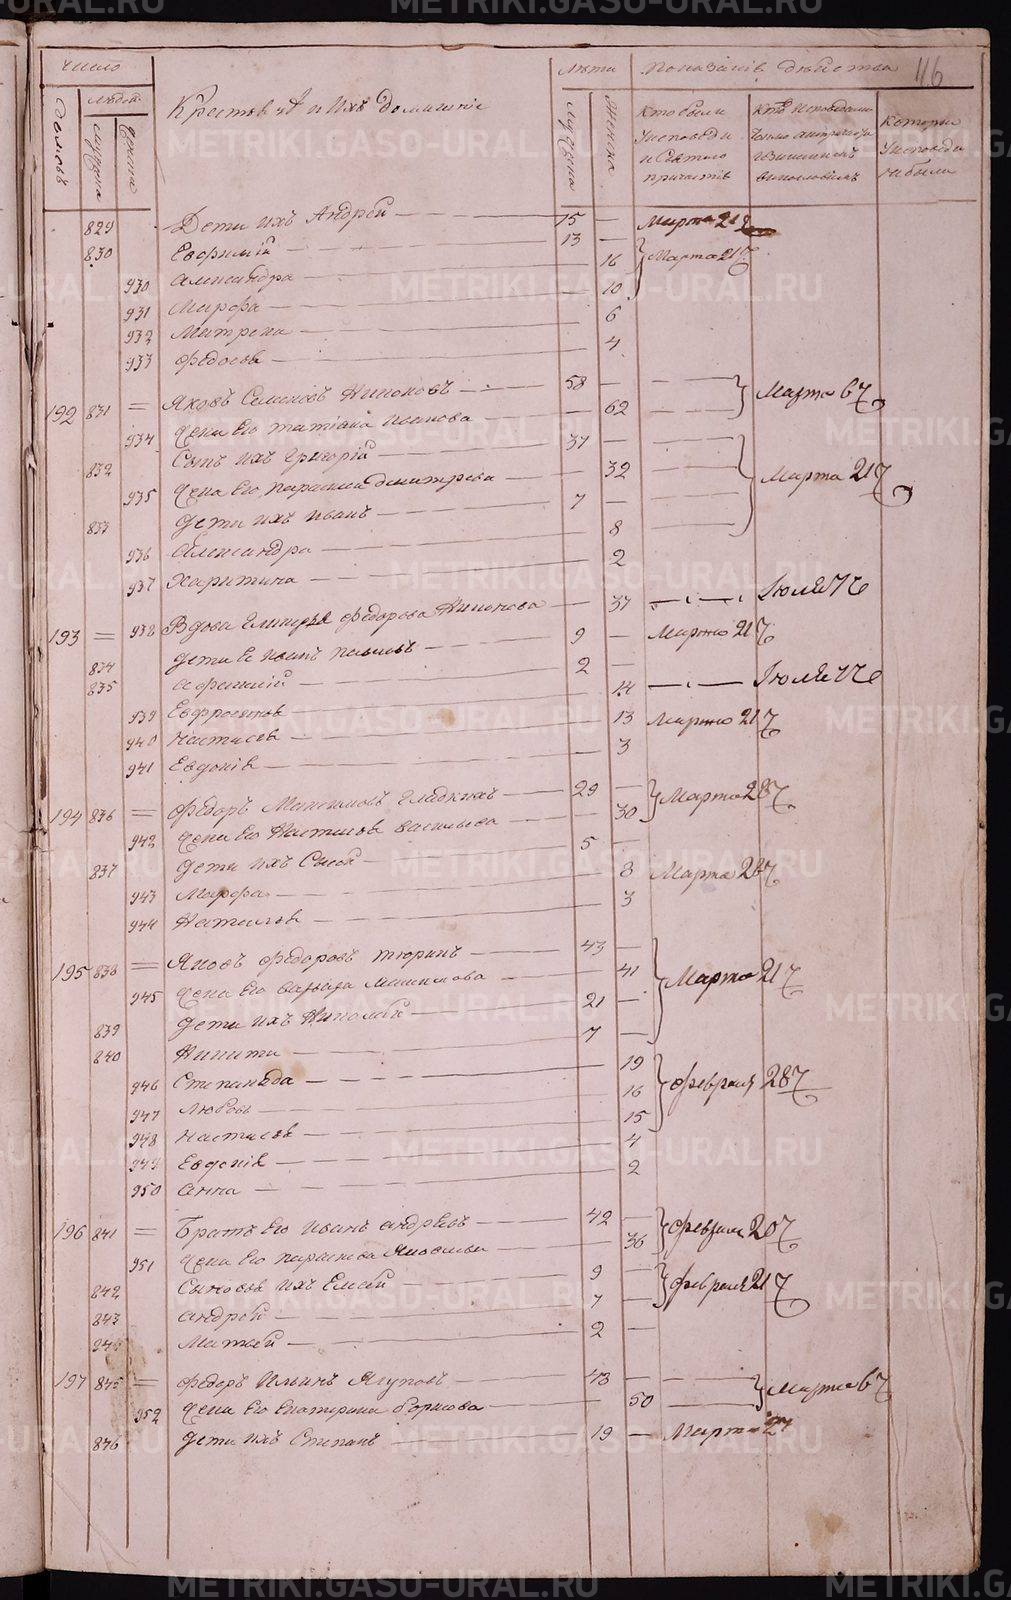 число
Лѣта
Показанiе дѣйства
116
домовъ
людей
мужеска
женска
Крестьянъ и Ихъ домашнiе
Мужеска
Женска
Кто были у исповеди и Святаго причастiя
Кто исповедались токмо а не причащались и за какимъ винословiемъ
Которые у исповеди не были
829 Дети Ихъ Андрей 15 Марта 21 ч
830 Ефимiй 13
930 Александра 16 Марта 21 ч
931 Марфа 10
932 Матрена 6
933 Федосья 4
192 831 Яковъ Семеновъ Никоновъ 58 Марта 6 ч
934 Жена Его Татiана 62
832 Сынъ Ихъ Григорiй 37
935 Жена Его Параскева Дмитрева 32 Марта 21 ч
833 Дети Ихъ Иванъ 7
936 Александра 8
937 Харитина 2
193 938 Вдова Федорова Никонова 37 Июля 11 ч
834 Дети Ее Иванъ Павловъ 9 Марта 21 ч
835 Афанасiй 2
939 Евфросинья 14 Июля 11 ч
940 Настасья 13 Марта 21 ч
941 Евдокiя 3
194 836 Федоръ Максимовъ Гладкихъ 29 Марта 28 ч
942 Жена Его Настасья Васильева 30
837 Дети Ихъ 5
943 Марфа 8 Марта 28 ч
944 Настасья 3
195 838 Яковъ Федоровъ Тюринъ 43
945 Жена Его Варвара Максимова 41 Марта 21 ч
839 Дети Ихъ Николай 21
840 Никита 7
946 Степанида 19
947 Любовь 16 Февраля 28 ч
948 Настасья 15
949 Евдокiя 4
950 Анна 2
196 841 Братъ Его Иванъ Андреевъ 42 Февраля 20 ч
951 Жена Его Параскева Яковлева 36
842 Сыновья Ихъ Елисей 9 Февраля 21 ч
843 Андрей 7
844 Матвей 2
197 845 Федоръ Ильинъ Ягуповъ 43 Марта 6 ч
952 Жена Его Екатерина Борисова 50
846 Дети Ихъ Степанъ 19 Марта 21
METRIKI.GASO-URAL.RU